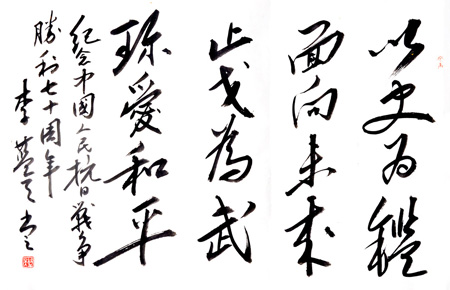 以史为鑑
面向未来
止戈為武
珎愛和平
紀念中國人民抗日戰争
勝利七十周年
李